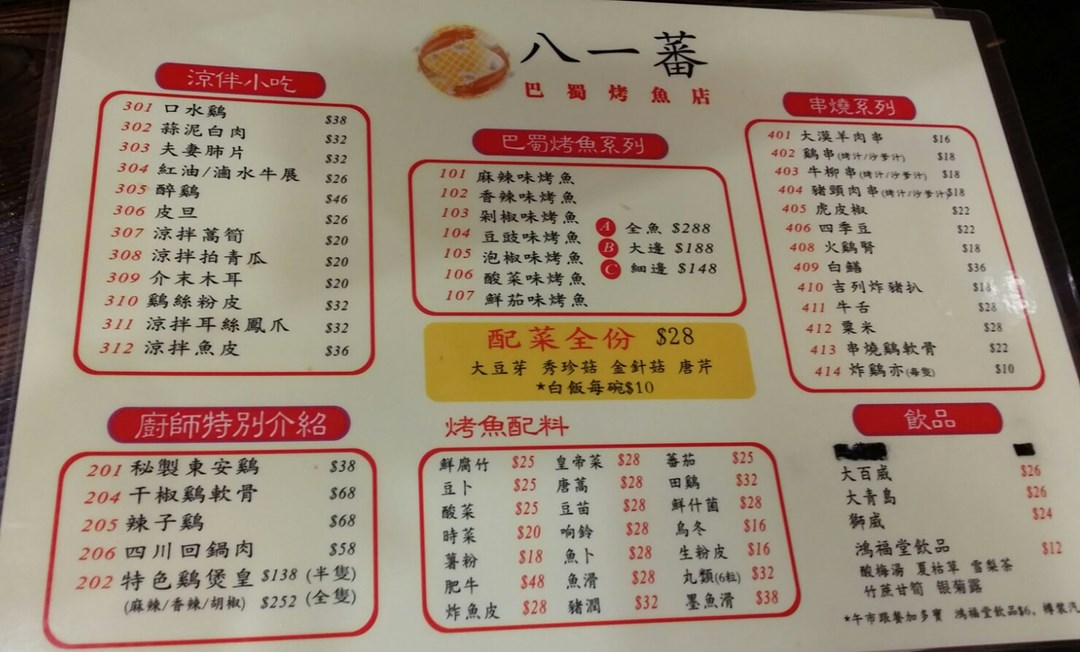 八一蕃
巴蜀烤魚店
涼伴小吃
301 口水鷄 $38
302 蒜泥白肉 $32
303 夫妻肺片 $32
304 紅油/滷水牛展 $26
305 醉鷄 $46
306 皮旦 $26
307 涼拌萵筍 $20
308 涼拌拍青瓜 $20
309 介末木耳 $20
310 鷄絲粉皮 $32
311 涼拌耳絲鳳爪 $32
312 涼拌魚皮 $36
巴蜀烤魚系列
101 麻辣味烤魚
102 香辣味烤魚
103 剁椒味烤魚
104 豆豉味烤魚
105 泡椒味烤魚
106 酸菜味烤魚
107 鮮茄味烤魚
A 全魚 $288
B 大邊 $188
C 細邊 $148
配菜全份 $28
大豆芽 秀珍菇 金針菇 唐芹
*白飯每碗$10
串燒系列
401 大漠羊肉串 $16
402 鷄串(烤汁/沙爹汁) $18
403 牛柳串(烤汁/沙爹汁) $18
404 豬頸肉串(烤汁/沙爹汁) $18
405 虎皮椒 $22
406 四季豆 $22
408 火鷄腎 $18
409 白鱔 $36
410 吉列炸豬扒 $18
411 牛舌 $28
412 粟米 $28
413 串燒鷄軟骨 $22
414 炸鷄亦(每隻) $10
廚師特別介紹
201 秘製東安鷄 $38
204 干椒鷄軟骨 $68
205 辣子鷄 $68
206 四川回鍋肉 $58
202 特色鷄煲皇 $138 (半隻)
(麻辣/香辣/胡椒) $252 (全隻)
烤魚配料
鮮腐竹 $25 皇帝菜 $28 蕃茄 $25
豆卜 $25 唐萵 $28 田鷄 $32
酸菜 $25 豆苗 $28 鮮什菌 $28
時菜 $20 响鈴 $28 烏冬 $16
薯粉 $18 魚卜 $28 生粉皮 $16
肥牛 $48 魚滑 $28 丸類(6粒) $32
炸魚皮 $28 豬潤 $32 墨魚滑 $38
飲品
大百威 $26
大青島 $26
獅威 $24
鴻福堂飲品 $12
酸梅湯 夏枯草 雪梨茶
竹蔗甘筍 银菊露
*午市跟餐加多寶 鴻福堂飲品$6, 樽裝汽